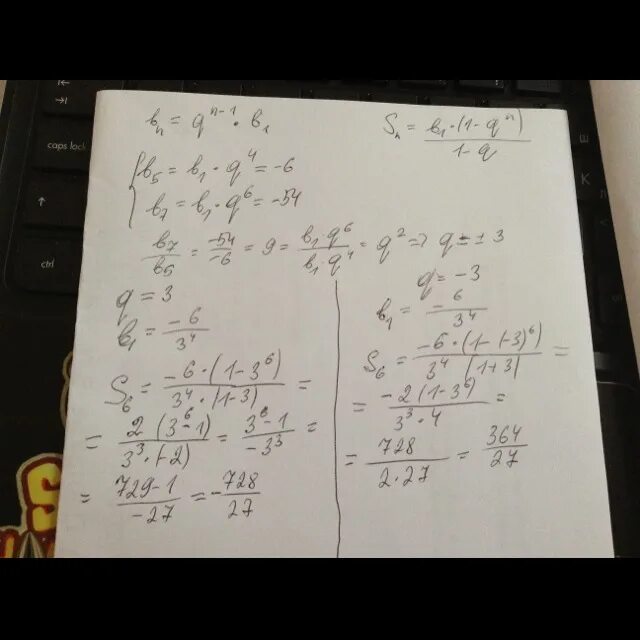 caps lock
ctrl
bₙ = qⁿ⁻¹ · b₁
Sₙ = b₁ · (1 - qⁿ) / 1 - q
{ b₅ = b₁ · q⁴ = -6
b₇ = b₁ · q⁶ = -54
b₇ / b₅ = -54 / -6 = 9 = b₁ · q⁶ / b₁ · q⁴ = q² ⇒ q = ± 3
q = 3
b₁ = -6 / 3⁴
S₆ = -6 · (1 - 3⁶) / 3⁴ · (1 - 3) =
= 2 (3⁶ - 1) / 3³ · (-2) = 3⁶ - 1 / -3³ =
= 729 - 1 / -27 = - 728 / 27
q = -3
b₁ = -6 / 3⁴
S₆ = -6 · (1 - (-3)⁶) / 3⁴ (1 + 3) =
= -2 (1 - 3⁶) / 3³ · 4 =
= 728 / 2 · 27 = 364 / 27